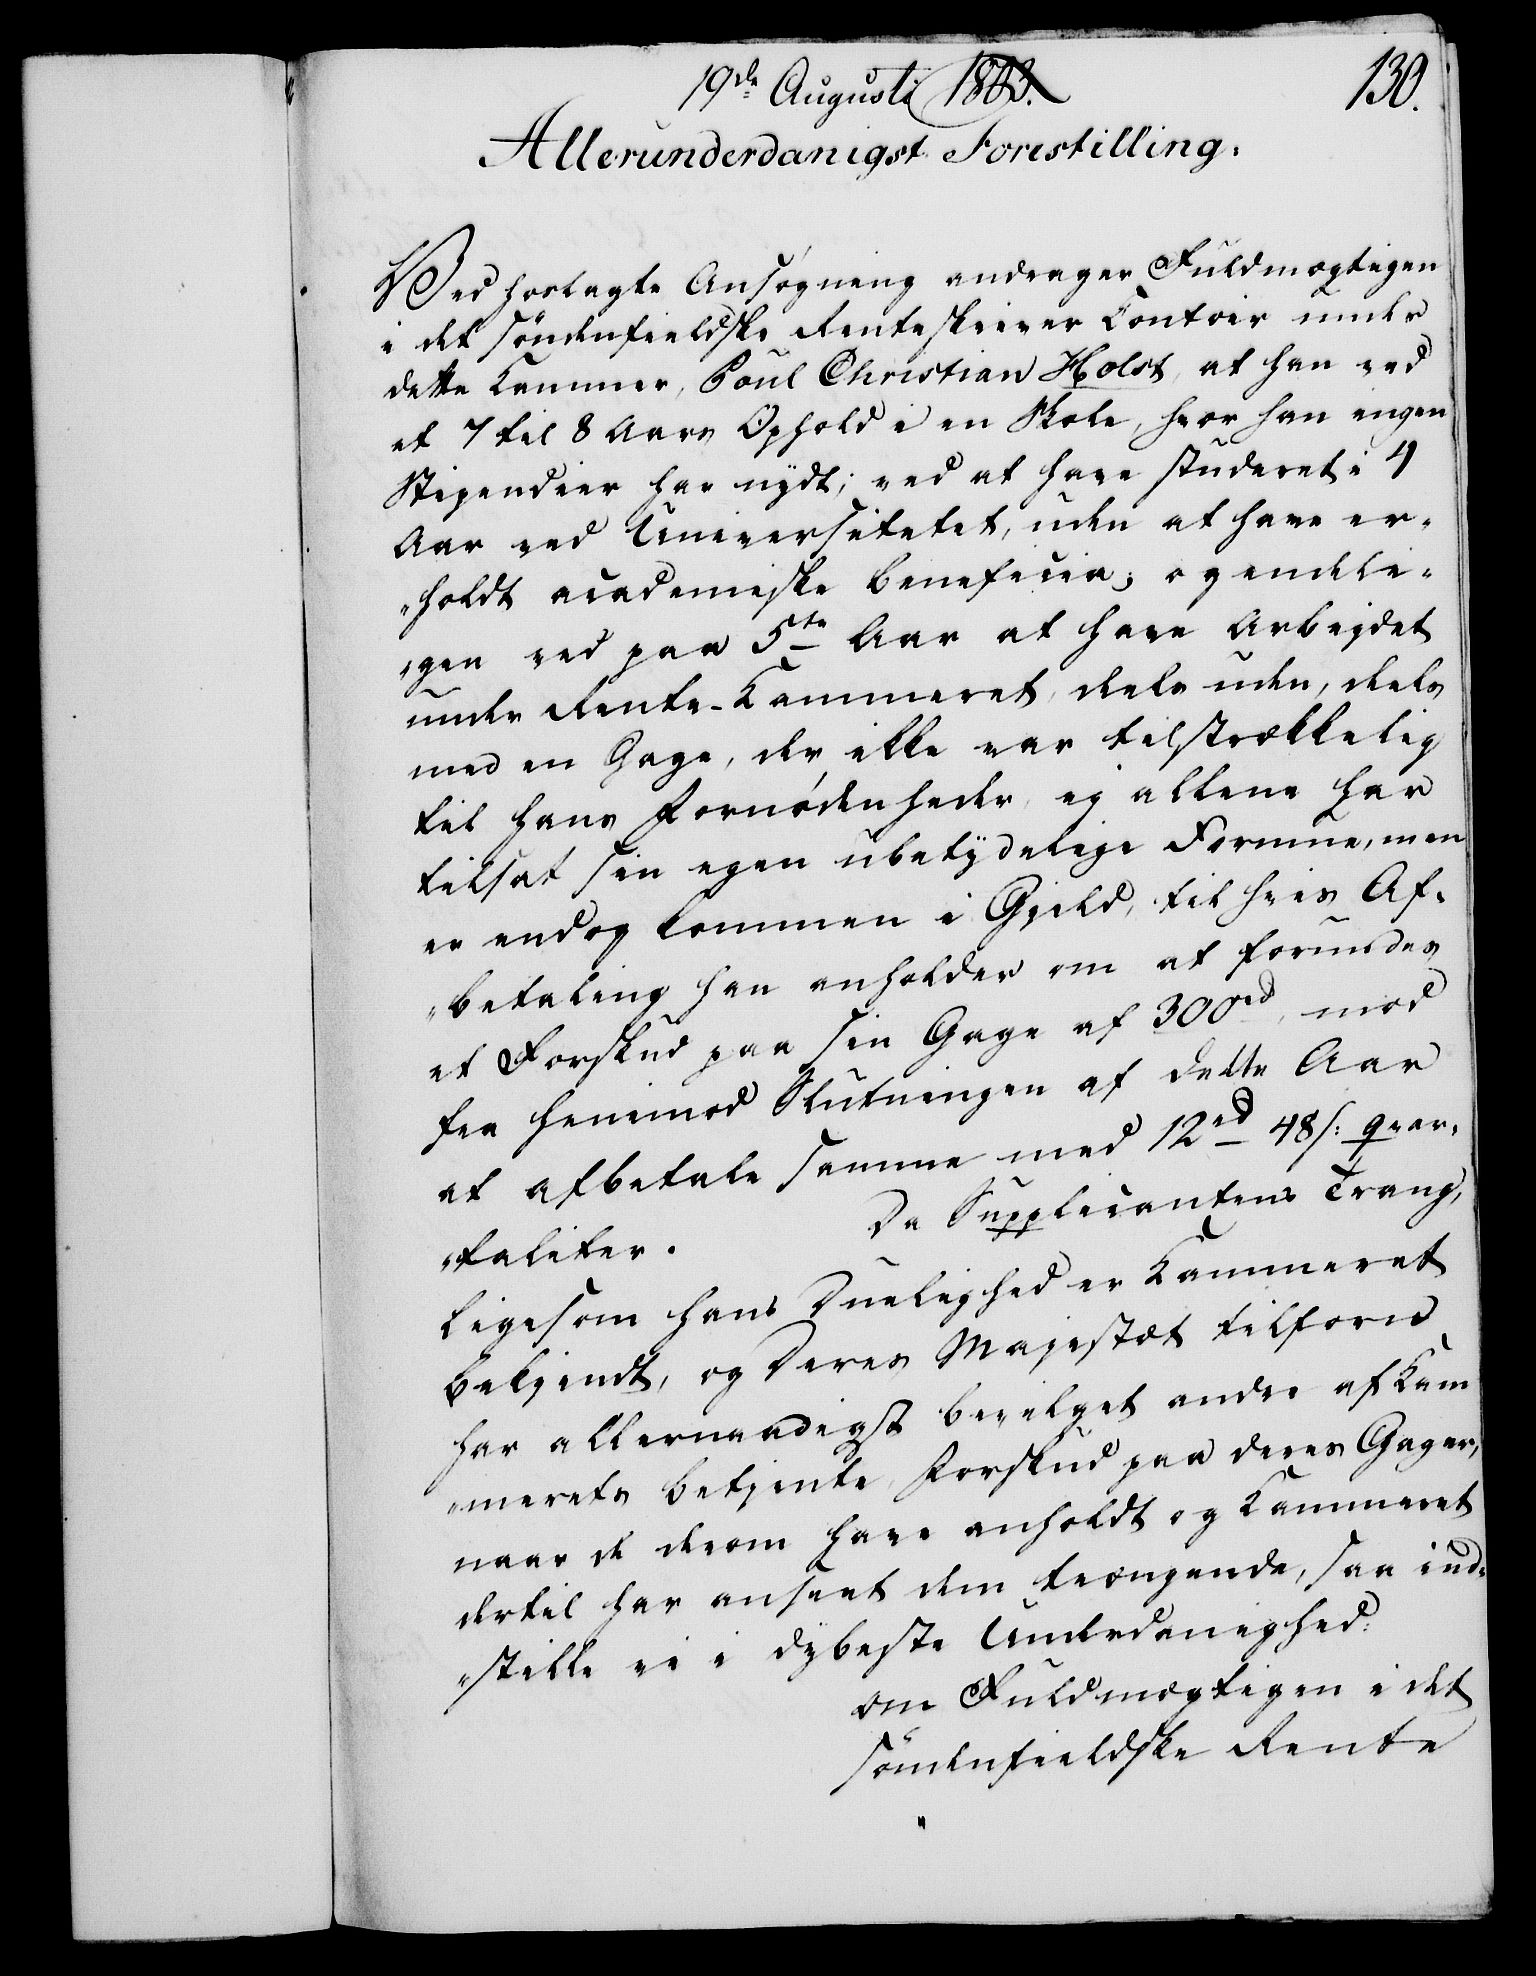 19de Augusti 1803.
130.
Allerunderdanigst Forestilling.
Ved hoslagte Ansøgning andrager Fuldmægtigen
i det søndenfieldske Renteskriver Contoir under
dette Kammer, Poul Christian Holst, at han ved
et 7 til 8 Aars Ophold i en Skole, hvor han ingen
Stipendier har nydt; ved at have studeret i 4
Aar ved Universitetet, uden at have er-
"holdt academiske beneficia; og endeli-
"gen ved paa 5te Aar at have Arbejdet
under Rente-Kammeret, deels uden, deels
med en Gage, der ikke var tilstrækkelig
til hans Fornødenheder, ej allene har
tilsat sin egen ubetydelige Formue, men
er endog kommen i Gjæld, til hvis Af-
"betaling han anholder om at forundes
et Forskud paa sin Gage af 300rd, mod
fra henimod Slutningen af dette Aar
at afbetale samme med 12rd 48s: qvar-
"taliter. Da Supplicantens Trang,
ligesom hans Duelighed er Kammeret
bekjendt, og Deres Majestæt tilforn
har allernaadigst bevilget andre af Kam
"merets betjente Forskud paa deres Gager,
naar de derom have anholdt og Kammeret
dertil har anseet dem trængende, saa ind-
"stille vi i dybeste Underdanighed:
om Fuldmægtigen i det
søndenfieldske Rente
"